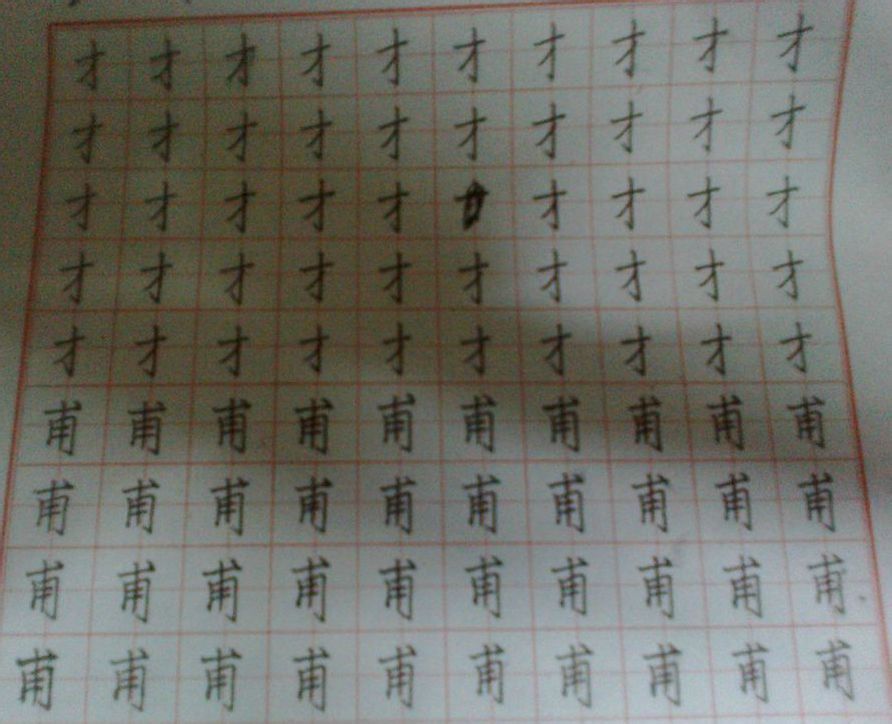 才才才才才才才才才才
才才才才才才才才才才
才才才才才才才才才
才才才才才才才才才才
才才才才才才才才才才
甫甫甫甫甫甫甫甫甫甫
甫甫甫甫甫甫甫甫甫甫
甫甫甫甫甫甫甫甫甫甫
甫甫甫甫甫甫甫甫甫甫